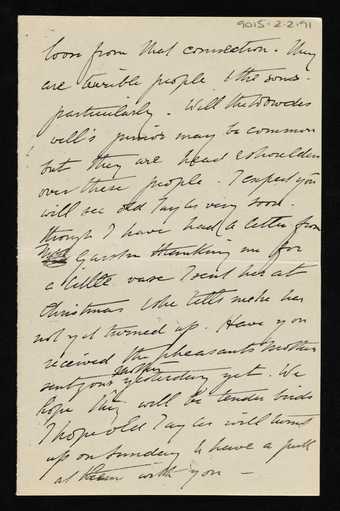 9015-2-2-91
loose from that connection. They
are terrible people & the sons
particularly. Will the
well's juniors may be common
but they are head & shoulders
over these people. I expect you
will see old Tayler very soon.
though I have had a letter from
Garstin thanking me for
a little vase I sent her at
Christmas & she tells me he has
not yet turned up. Have you
received the pheasants Mother
sent you yesterday yet. We
hope they will be tender birds
I hope old Tayler will turn
up on Sunday & have a pull
at them with you —